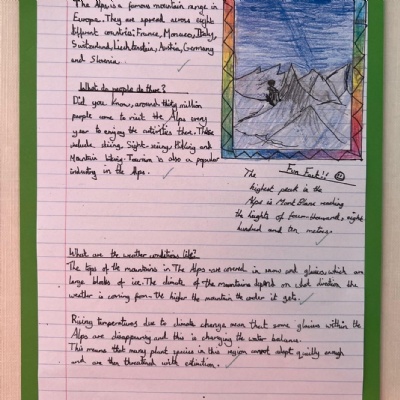 The Alps is a famous mountain range in
Europe. They are spread across eight
different countries: France, Monaco, Italy,
Switzerland, Liechtenstein, Austria, Germany
and Slovenia
What do people do there?
Did you know, around thirty million
people come to visit the Alps every
year to enjoy the activities there. These
include skiing, Sight-seeing, Hiking and
Mountain biking. Tourism is also a popular
industry in the Alps.
Fun Fact!!
The
highest peak in the
Alps is Mont Blanc reaching
the heights of four-thousand, eight
hundred and ten metres.
What are the weather conditions like?
The tops of the mountains in The Alps are covered in snow and glaciers, which are
large blocks of ice. The climate of the mountains depends on what direction the
weather is coming from- the higher the mountain the colder it gets.
Rising temperatures due to climate change mean that some glaciers within the
Alps are disappearing and this is changing the water balance.
This means that many plant species in this region cannot adapt quickly enough
and are then threatened with extinction.